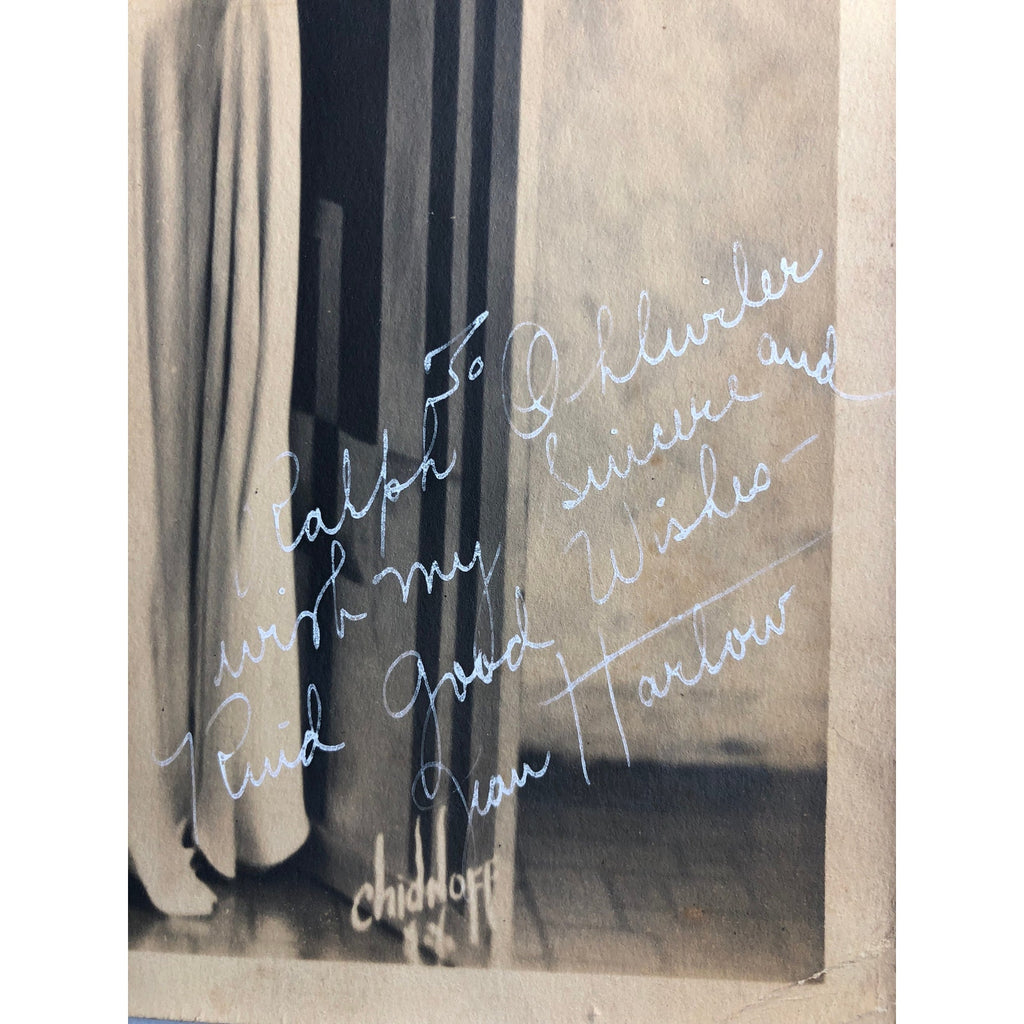 To
Ralph Ohlwiler
with my Sincere and
Kind good Wishes —
Jean Harlow
Chidnoff
N.Y.